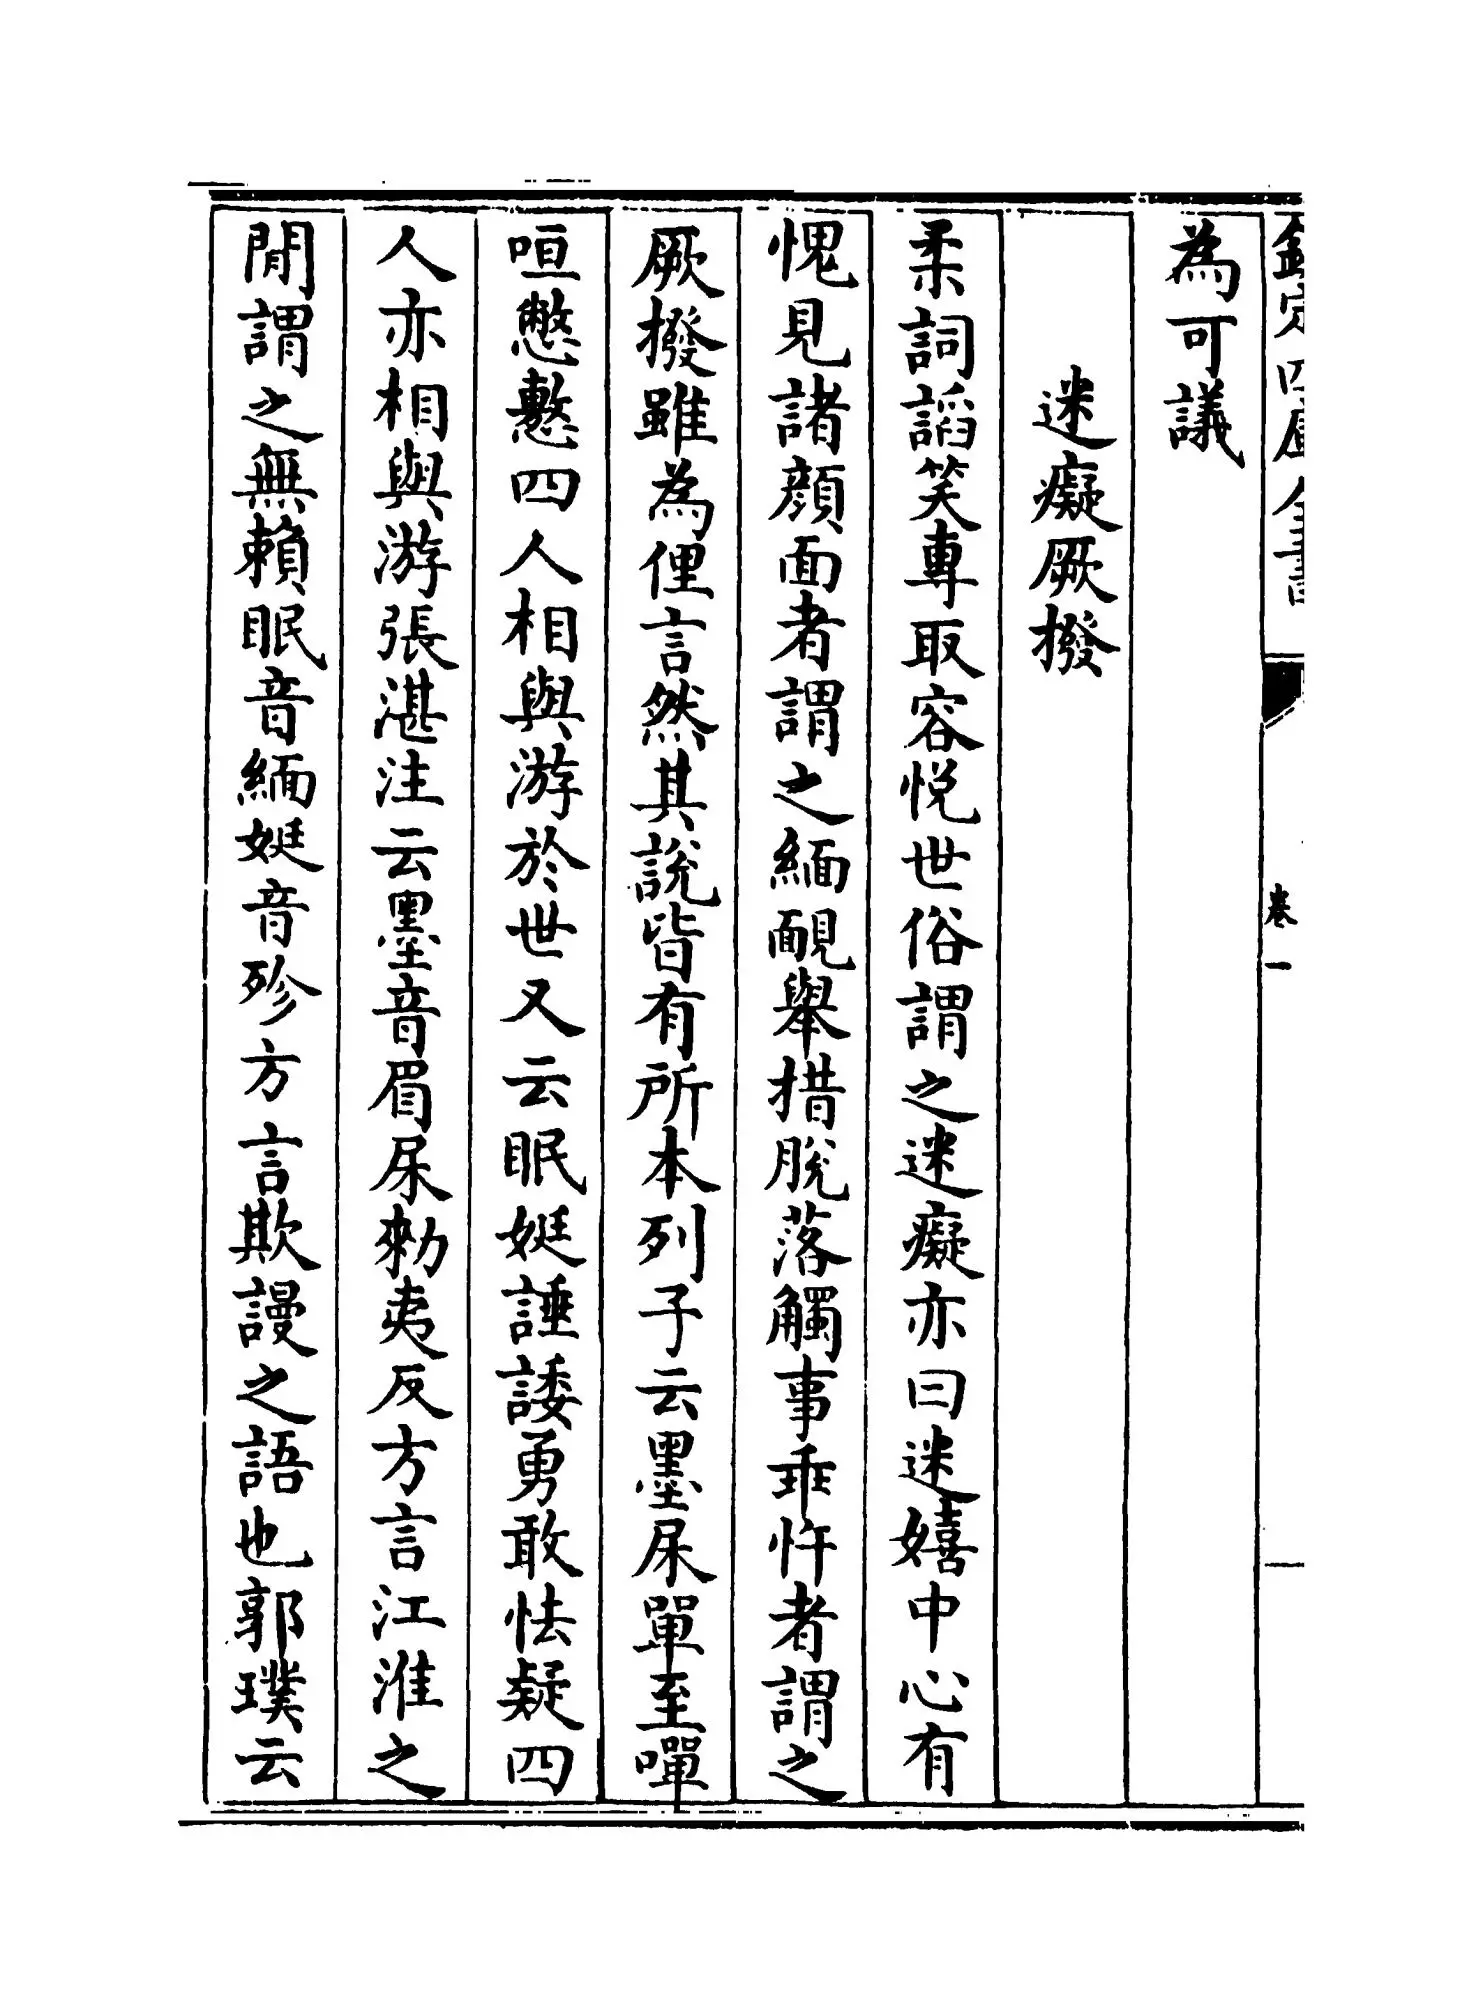 欽定四庫全書
卷一
為可議
迷癡厥撥
柔詞謟笑專取容悅世俗謂之迷癡亦曰迷嬉中心有
愧見諸顔面者謂之緬靦舉措脫落觸事乖忤者謂之
厥撥雖為俚言然其說皆有所本列子云墨杘單至嘽
咺憋懯四人相與游於世又云眠娗諈諉勇敢怯疑四
人亦相與游張湛注云墨音眉杘勑夷反方言江淮之
閒謂之無賴眠音緬娗音殄方言欺謾之語也郭璞云